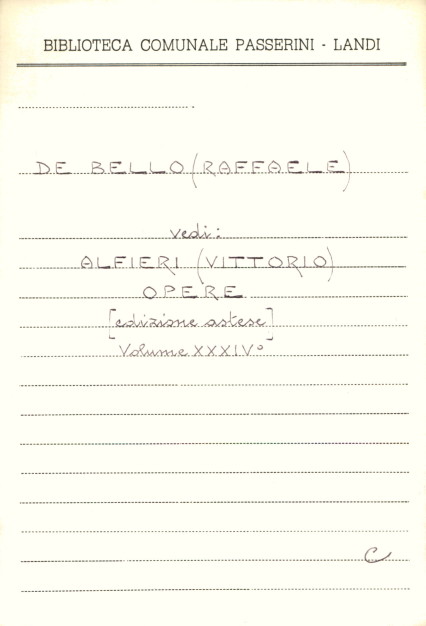 BIBLIOTECA COMUNALE PASSERINI - LANDI
DE BELLO (RAFFAELE)
vedi:
ALFIERI (VITTORIO)
OPERE
[edizione astese]
Volume XXXIV°
C